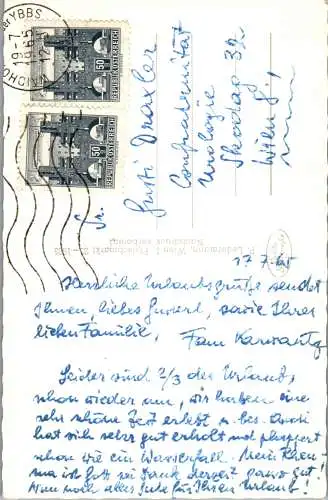 YBBS
19-7
65
WAIDHO
50
REPUBLIK ÖSTERREICH
50
REPUBLIK ÖSTERREICH
Gusti Draxler
Urologie
Skodag 32
Wien 8.,
P. Ledermann, Wien I, Fleischmarkt 20–
Nachdruck verboten!
17.7.65
Herzliche Urlaubsgrüße sendet
Ihnen, liebes Gusterl, sowie Ihrer
lieben Familie,
Fam
Leider sind 2/3 des Urlaubs,
schon wieder um, wir haben eine
sehr schöne Zeit erlebt u. bes.
hat sich sehr gut erholt und plappert
schon wie ein Wasserfall. Mein
ma ist Gott sei Dank derzeit ganz gut!
Nun noch alles Gute für Ihren Urlaub!